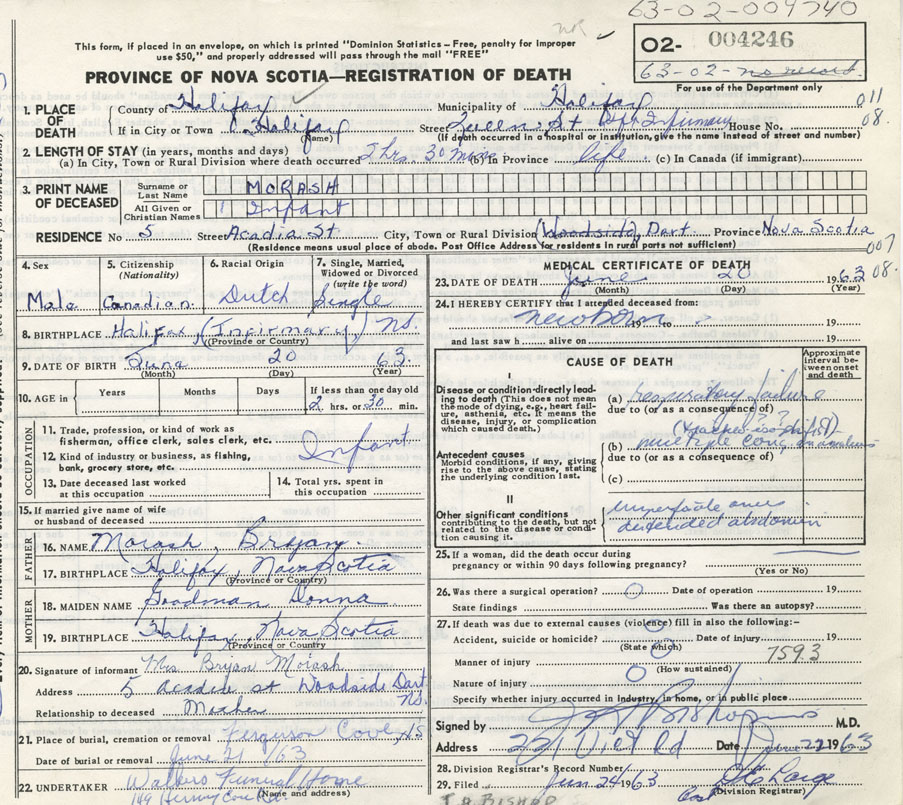 63-02-009740
This form, if placed in an envelope, on which is printed "Dominion Statistics – Free, penalty for improper
use $50," and properly addressed will pass through the mail "FREE"
NR
02- 004246
63-02- no record
For use of the Department only
PROVINCE OF NOVA SCOTIA—REGISTRATION OF DEATH
1. PLACE OF DEATH
County of Halifax Municipality of Halifax 011
If in City or Town Halifax (Name) Street Queen St Infirmary House No. 08.
(If death occurred in a hospital or institution, give the name instead of street and number)
2. LENGTH OF STAY (in years, months and days)
(a) In City, Town or Rural Division where death occurred 2 hrs. 30 mins (b) In Province life (c) In Canada (if immigrant)
3. PRINT NAME OF DECEASED
Surname or Last Name MORASH
All Given or Christian Names Infant
RESIDENCE No 5 Street Acadia St City, Town or Rural Division (Woodside) Dart. Province Nova Scotia
(Residence means usual place of abode. Post Office Address for residents in rural parts not sufficient)
007
08.
4. Sex Male
5. Citizenship (Nationality) Canadian
6. Racial Origin Dutch
7. Single, Married, Widowed or Divorced (write the word) Single
8. BIRTHPLACE Halifax, (Infirmary) NS.
(Province or Country)
9. DATE OF BIRTH June 20 63.
(Month) (Day) (Year)
10. AGE in Years Months Days If less than one day old
2 hrs. or 30 min.
OCCUPATION
11. Trade, profession, or kind of work as
fisherman, office clerk, sales clerk, etc. Infant
12. Kind of industry or business, as fishing,
bank, grocery store, etc.
13. Date deceased last worked
at this occupation
14. Total yrs. spent in
this occupation
15. If married give name of wife
or husband of deceased
FATHER
16. NAME Morash, Bryan
17. BIRTHPLACE Halifax, Nova Scotia
(Province or Country)
MOTHER
18. MAIDEN NAME Goodman Donna
19. BIRTHPLACE Halifax, Nova Scotia
(Province or Country)
20. Signature of informant Mrs. Bryan Morash
Address 5 Acadia St Woodside Dart
NS.
Relationship to deceased Mother
21. Place of burial, cremation or removal Ferguson Cove, NS
Date of burial or removal June 21/63
22. UNDERTAKER Walkers Funeral Home
149 Herring Cove Rd.
(Name and address)
MEDICAL CERTIFICATE OF DEATH
23. DATE OF DEATH June 20 1963
(Month) (Day) (Year)
24. I HEREBY CERTIFY that I attended deceased from:
newborn 19 to 19
and last saw h alive on 19
CAUSE OF DEATH
Approximate interval between onset and death
I
Disease or condition directly leading to death (This does not mean the mode of dying, e.g., heart failure, asthenia, etc. It means the disease, injury, or complication which caused death.)
(a) respiratory failure
due to (or as a consequence of)
Antecedent causes
Morbid conditions, if any, giving rise to the above cause, stating the underlying condition last.
(b) multiple cong. anomalies
due to (or as a consequence of)
(c)
II
Other significant conditions contributing to the death, but not related to the disease or condition causing it.
imperforate anus
distended abdomen
25. If a woman, did the death occur during
pregnancy or within 90 days following pregnancy?
(Yes or No)
26. Was there a surgical operation? O Date of operation 19
State findings Was there an autopsy?
27. If death was due to external causes (violence) fill in also the following:-
Accident, suicide or homicide? Date of injury 19
(State which)
7593
Manner of injury
(How sustained)
Nature of injury
Specify whether injury occurred in industry, in home, or in public place
Signed by M.D.
Address 221 Vict Rd Date June 22 1963
28. Division Registrar's Record Number
29. Filed Jun 24 1963
(Division Registrar)
J.A. BISHOP